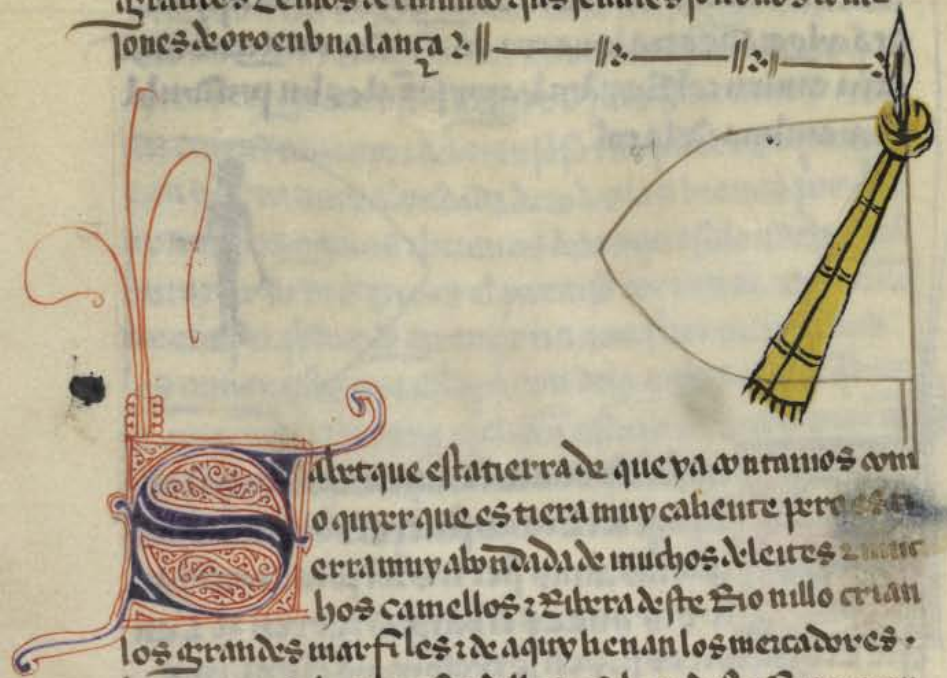 jones de oro en bna lança ⁊
Sabet que esta tierra de que ya contamos com
o quyer que es tiera muy caliente pero es ti
erra muy abondada de muchos deleites ⁊ muc
hos camellos ⁊ Ribera deste Rio nillo crian
los grandes marfiles ⁊ de aquy lieuan los mercadores.